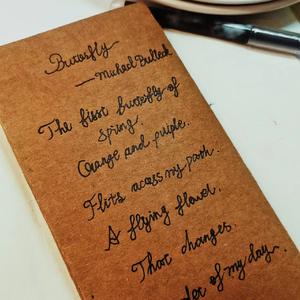 Butterfly
— Michael Bullock
The first butterfly of
spring.
Orange and purple.
Flits across my path.
A flying flower.
That changes.
of my day.